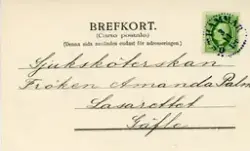 BREFKORT.
(Carte postale)
(Denna sida uteslutes endast för adresseringen.)
Sjuksköterskan
Fröken Amanda Palm
Lasarettet
Gäfle